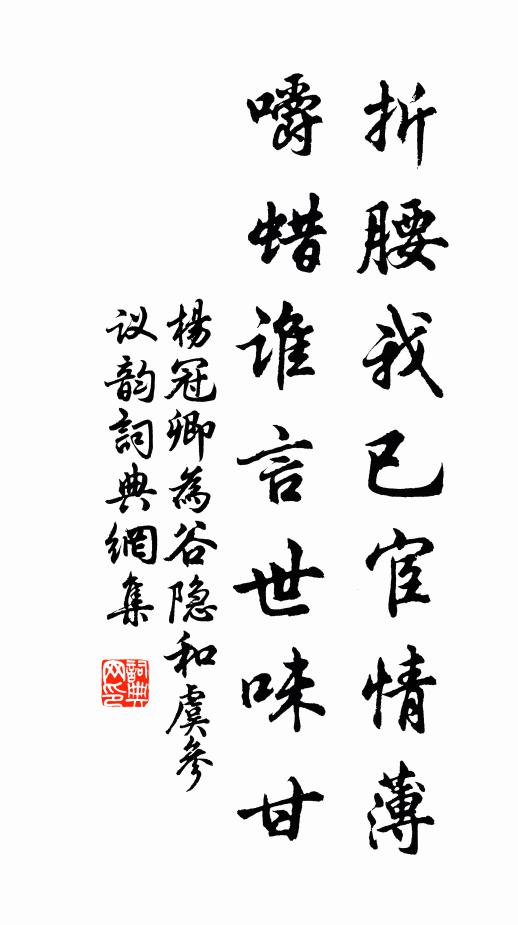 折腰我已宦情薄
嚼蜡谁言世味甘
楊冠卿為谷隐和虞參
议韵詞典網集
詞典网印